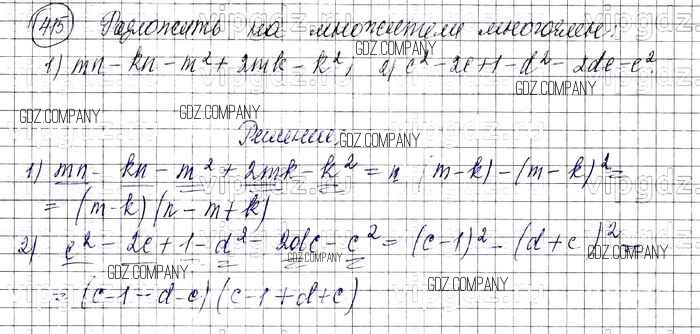 415 Разложить на множители многочлен:
1) mn - kn - m² + 2mk - k²; 2) c² - 2c + 1 - d² - 2de - e².
Решение.
1) mn - kn - m² + 2mk - k² = n (m-k) - (m-k)² =
= (m-k)(n-m+k)
2) c² - 2c + 1 - d² - 2de - e² = (c-1)² - (d+e)² =
= (c-1-d-e)(c-1+d+e)
GDZ.COMPANY
GDZ.COMPANY
GDZ.COMPANY
GDZ.COMPANY
GDZ.COMPANY
GDZ.COMPANY
GDZ.COMPANY
GDZ.COMPANY
GDZ.COMPANY